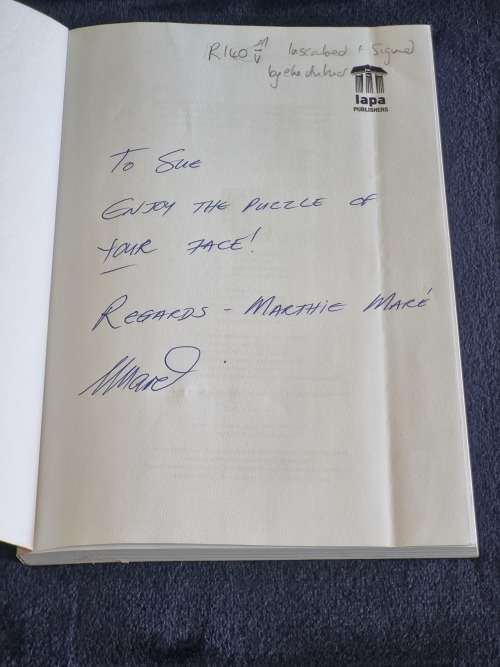 R140 Inscribed & Signed
by the author
lapa
PUBLISHERS
TO SUE
ENJOY THE PUZZLE OF
YOUR FACE!
REGARDS - MARTHIE MARÉ
MMaré